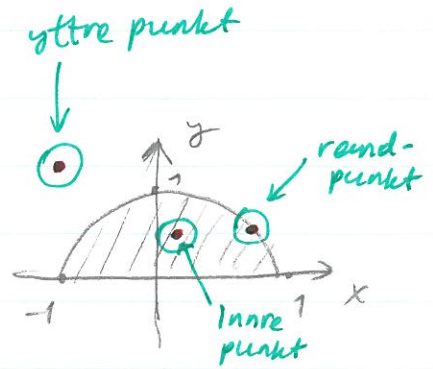 yttre punkt
y
1
rand-
punkt
-1
1
x
Innre
punkt